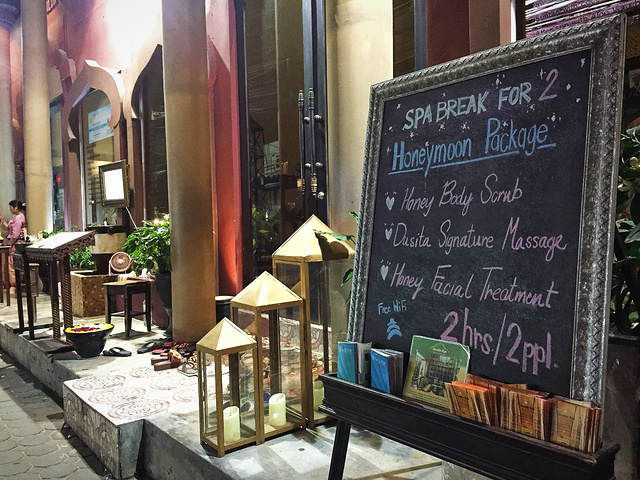 SPA BREAK FOR 2
Honeymoon Package
Honey Body Scrub
Dusita Signature Massage
Honey Facial Treatment
Free WiFi
2hrs/2ppl